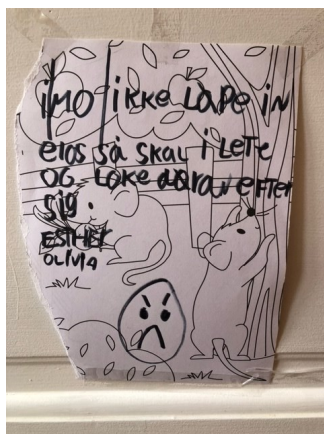 iMO iKKe LåPe iN
elas så sKal i LeTe
OG LOKe dáran eFTer
sig
ESTHER
OLiViA